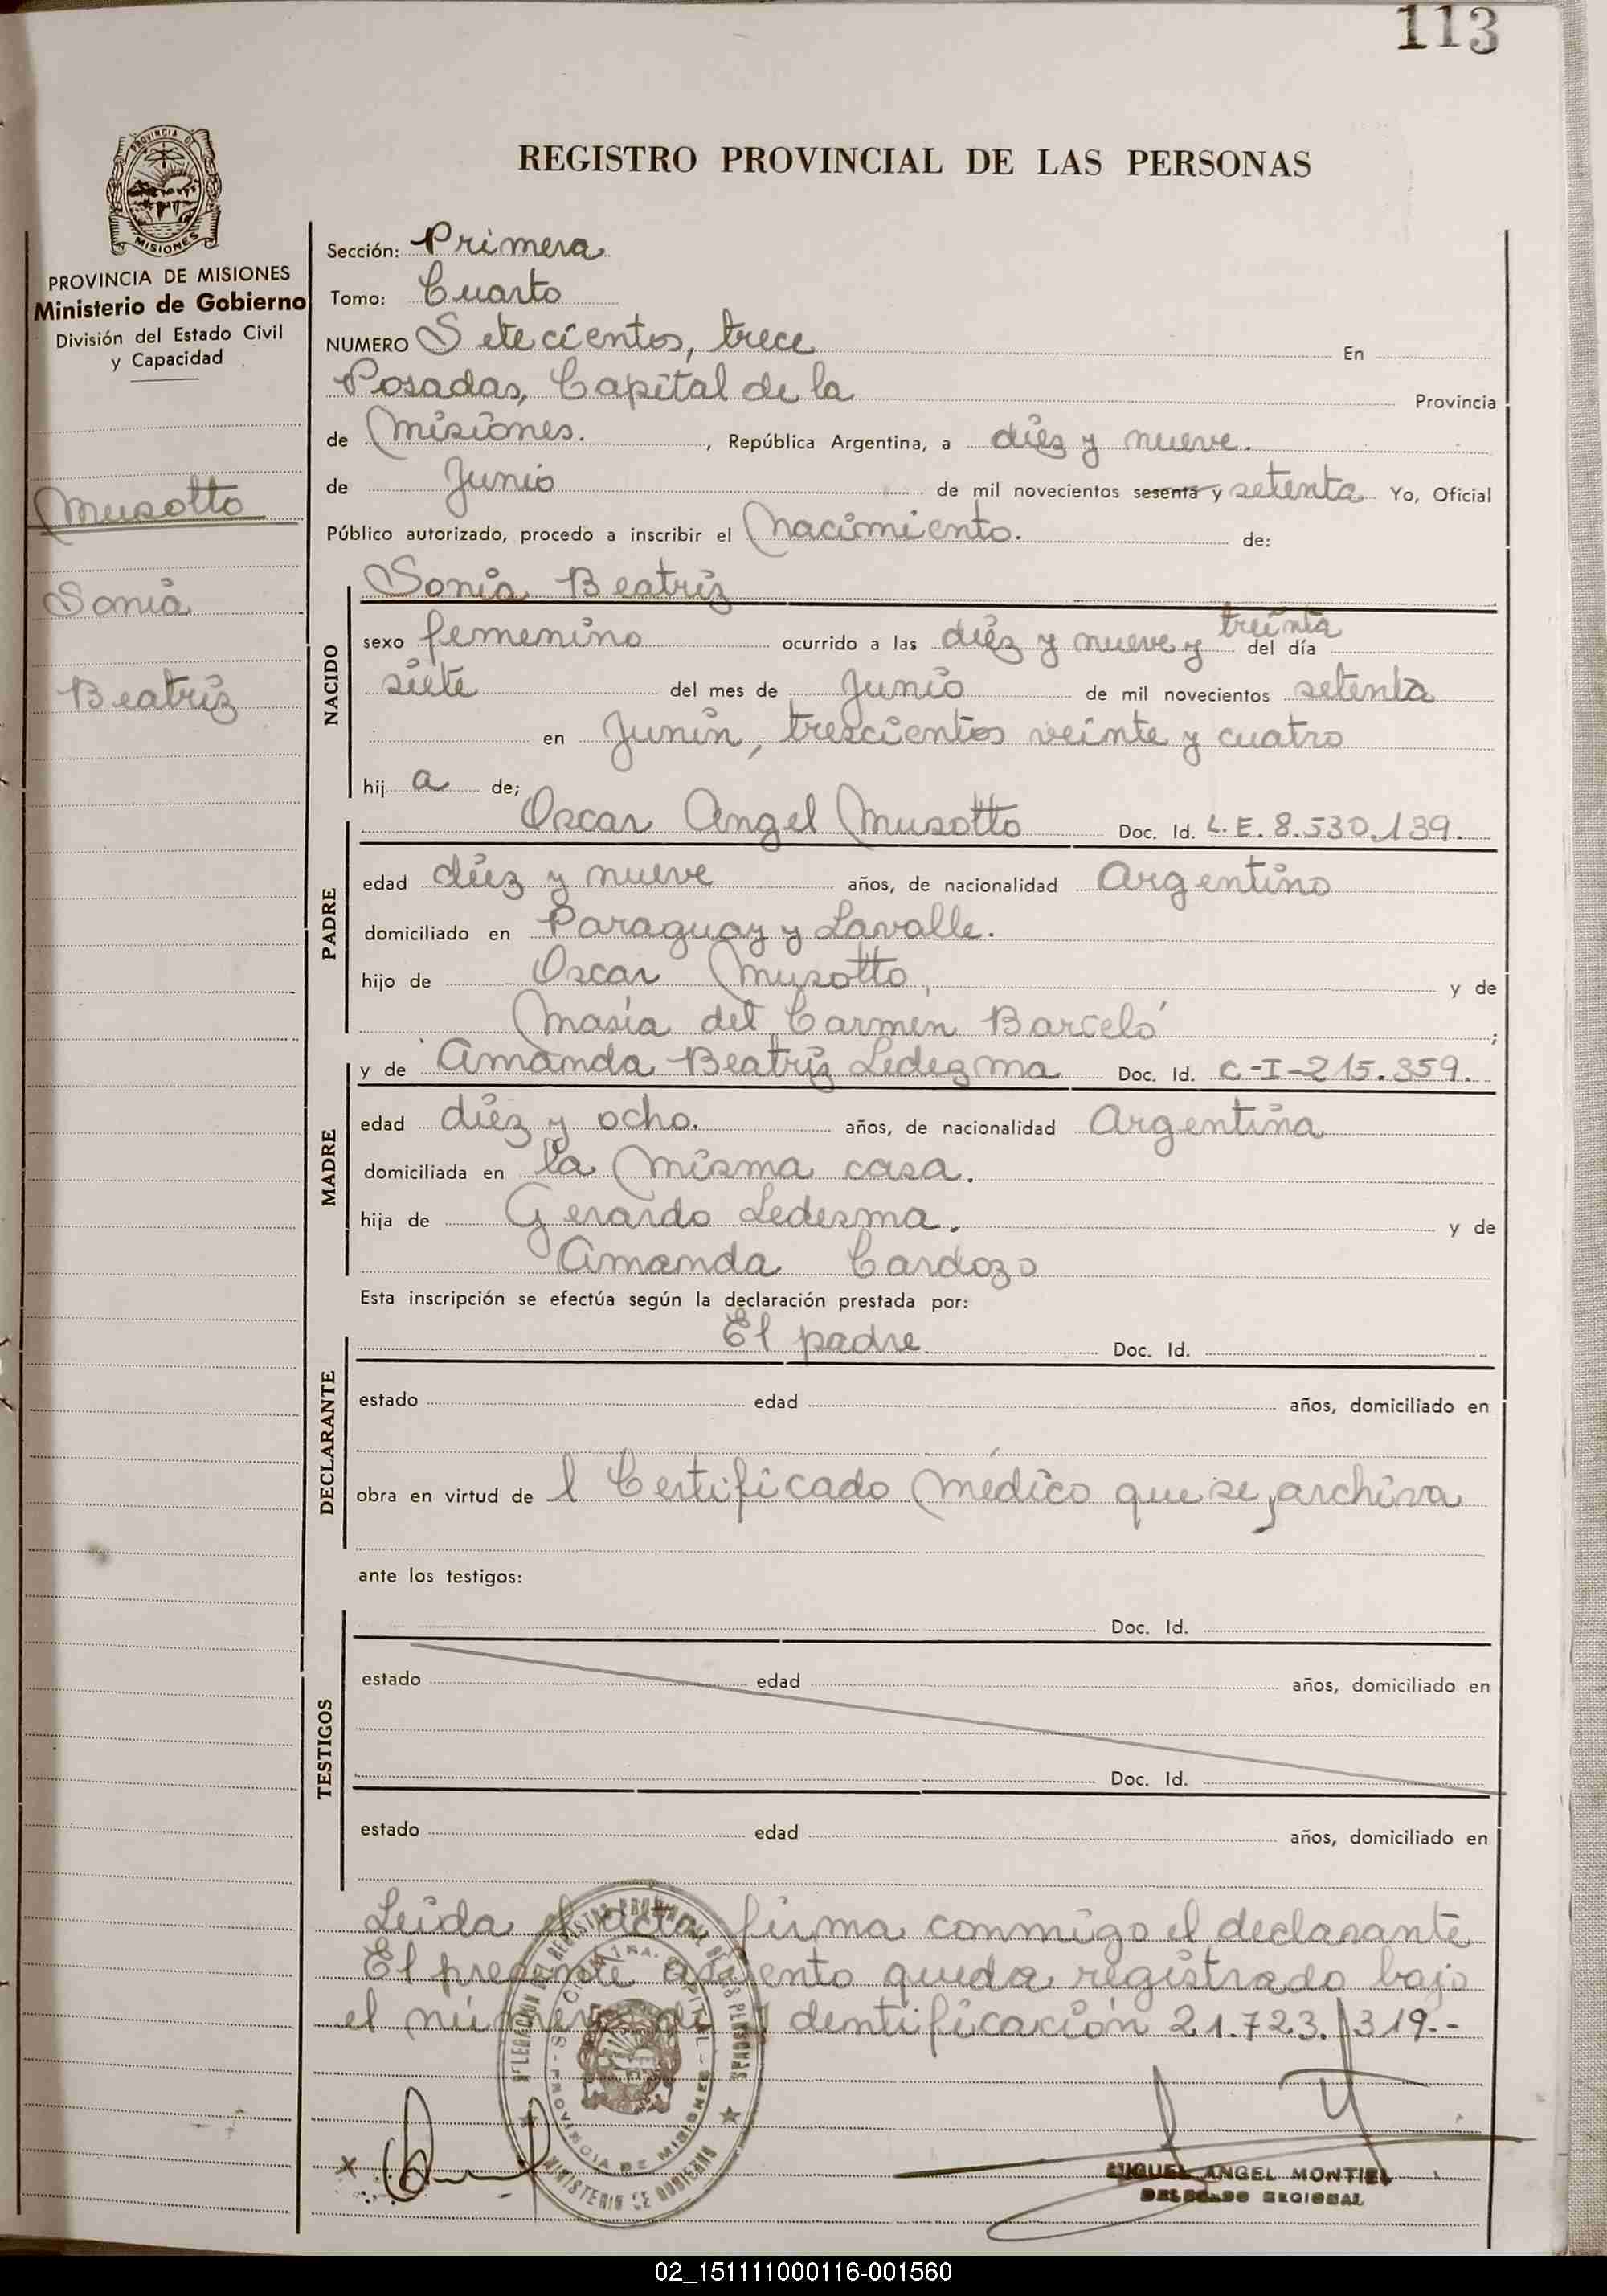 113
PROVINCIA DE
MISIONES
PROVINCIA DE MISIONES
Ministerio de Gobierno
División del Estado Civil
y Capacidad
Musotto
Sonia
Beatriz
REGISTRO PROVINCIAL DE LAS PERSONAS
Sección: Primera
Tomo: Cuarto
NUMERO Setecientos, trece En
Posadas, Capital de la Provincia
de Misiones. , República Argentina, a diez y nueve.
de Junio de mil novecientos sesenta y setenta Yo, Oficial
Público autorizado, procedo a inscribir el Nacimiento. de:
Sonia Beatriz
NACIDO
treinta
sexo femenino ocurrido a las diez y nueve y del día
siete del mes de Junio de mil novecientos setenta
en Junín, trescientos veinte y cuatro
hij a de;
Oscar Angel Musotto Doc. Id. L.E. 8.530.139.
PADRE
edad diez y nueve años, de nacionalidad Argentino
domiciliado en Paraguay y Lavalle.
hijo de Oscar Musotto, y de
María del Carmen Barceló ;
y de Amanda Beatriz Ledezma Doc. Id. C-I-215.359.
MADRE
edad diez y ocho. años, de nacionalidad Argentina
domiciliada en la Misma casa.
hija de Gerardo Ledesma. y de
Amanda Cardozo
Esta inscripción se efectúa según la declaración prestada por:
El padre Doc. Id.
DECLARANTE
estado edad años, domiciliado en
obra en virtud de l Certificado Médico que se archiva
ante los testigos:
Doc. Id.
TESTIGOS
estado edad años, domiciliado en
Doc. Id.
estado edad años, domiciliado en
Leida el acta firma conmigo el declarante
El presente asiento queda registrado bajo
el número de Identificación 21.723.319.--
PROVINCIA DE MISIONES
MINISTERIO DE GOBIERNO
x
MIGUEL ANGEL MONTIEL
DELEGADO REGIONAL
02_151111000116-001560